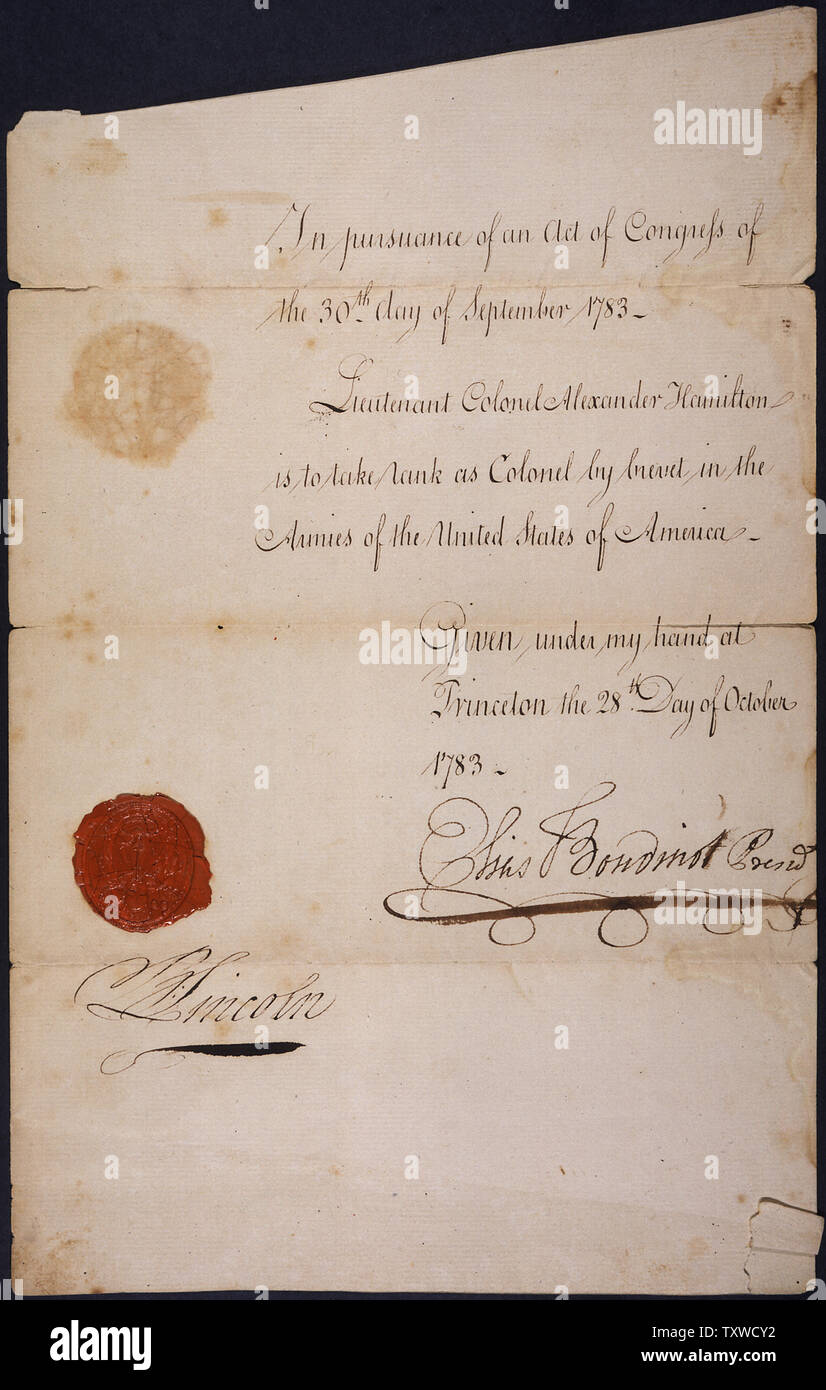 In pursuance of an Act of Congress of
the 30th day of September 1783_
Lieutenant Colonel Alexander Hamilton
is to take rank as Colonel by brevet in the
Armies of the United States of America_
Given under my hand at
Princeton the 28th Day of October
1783_
Elias Boudinot Presidt
B Lincoln
alamy
Image ID: TXWCY2
www.alamy.com